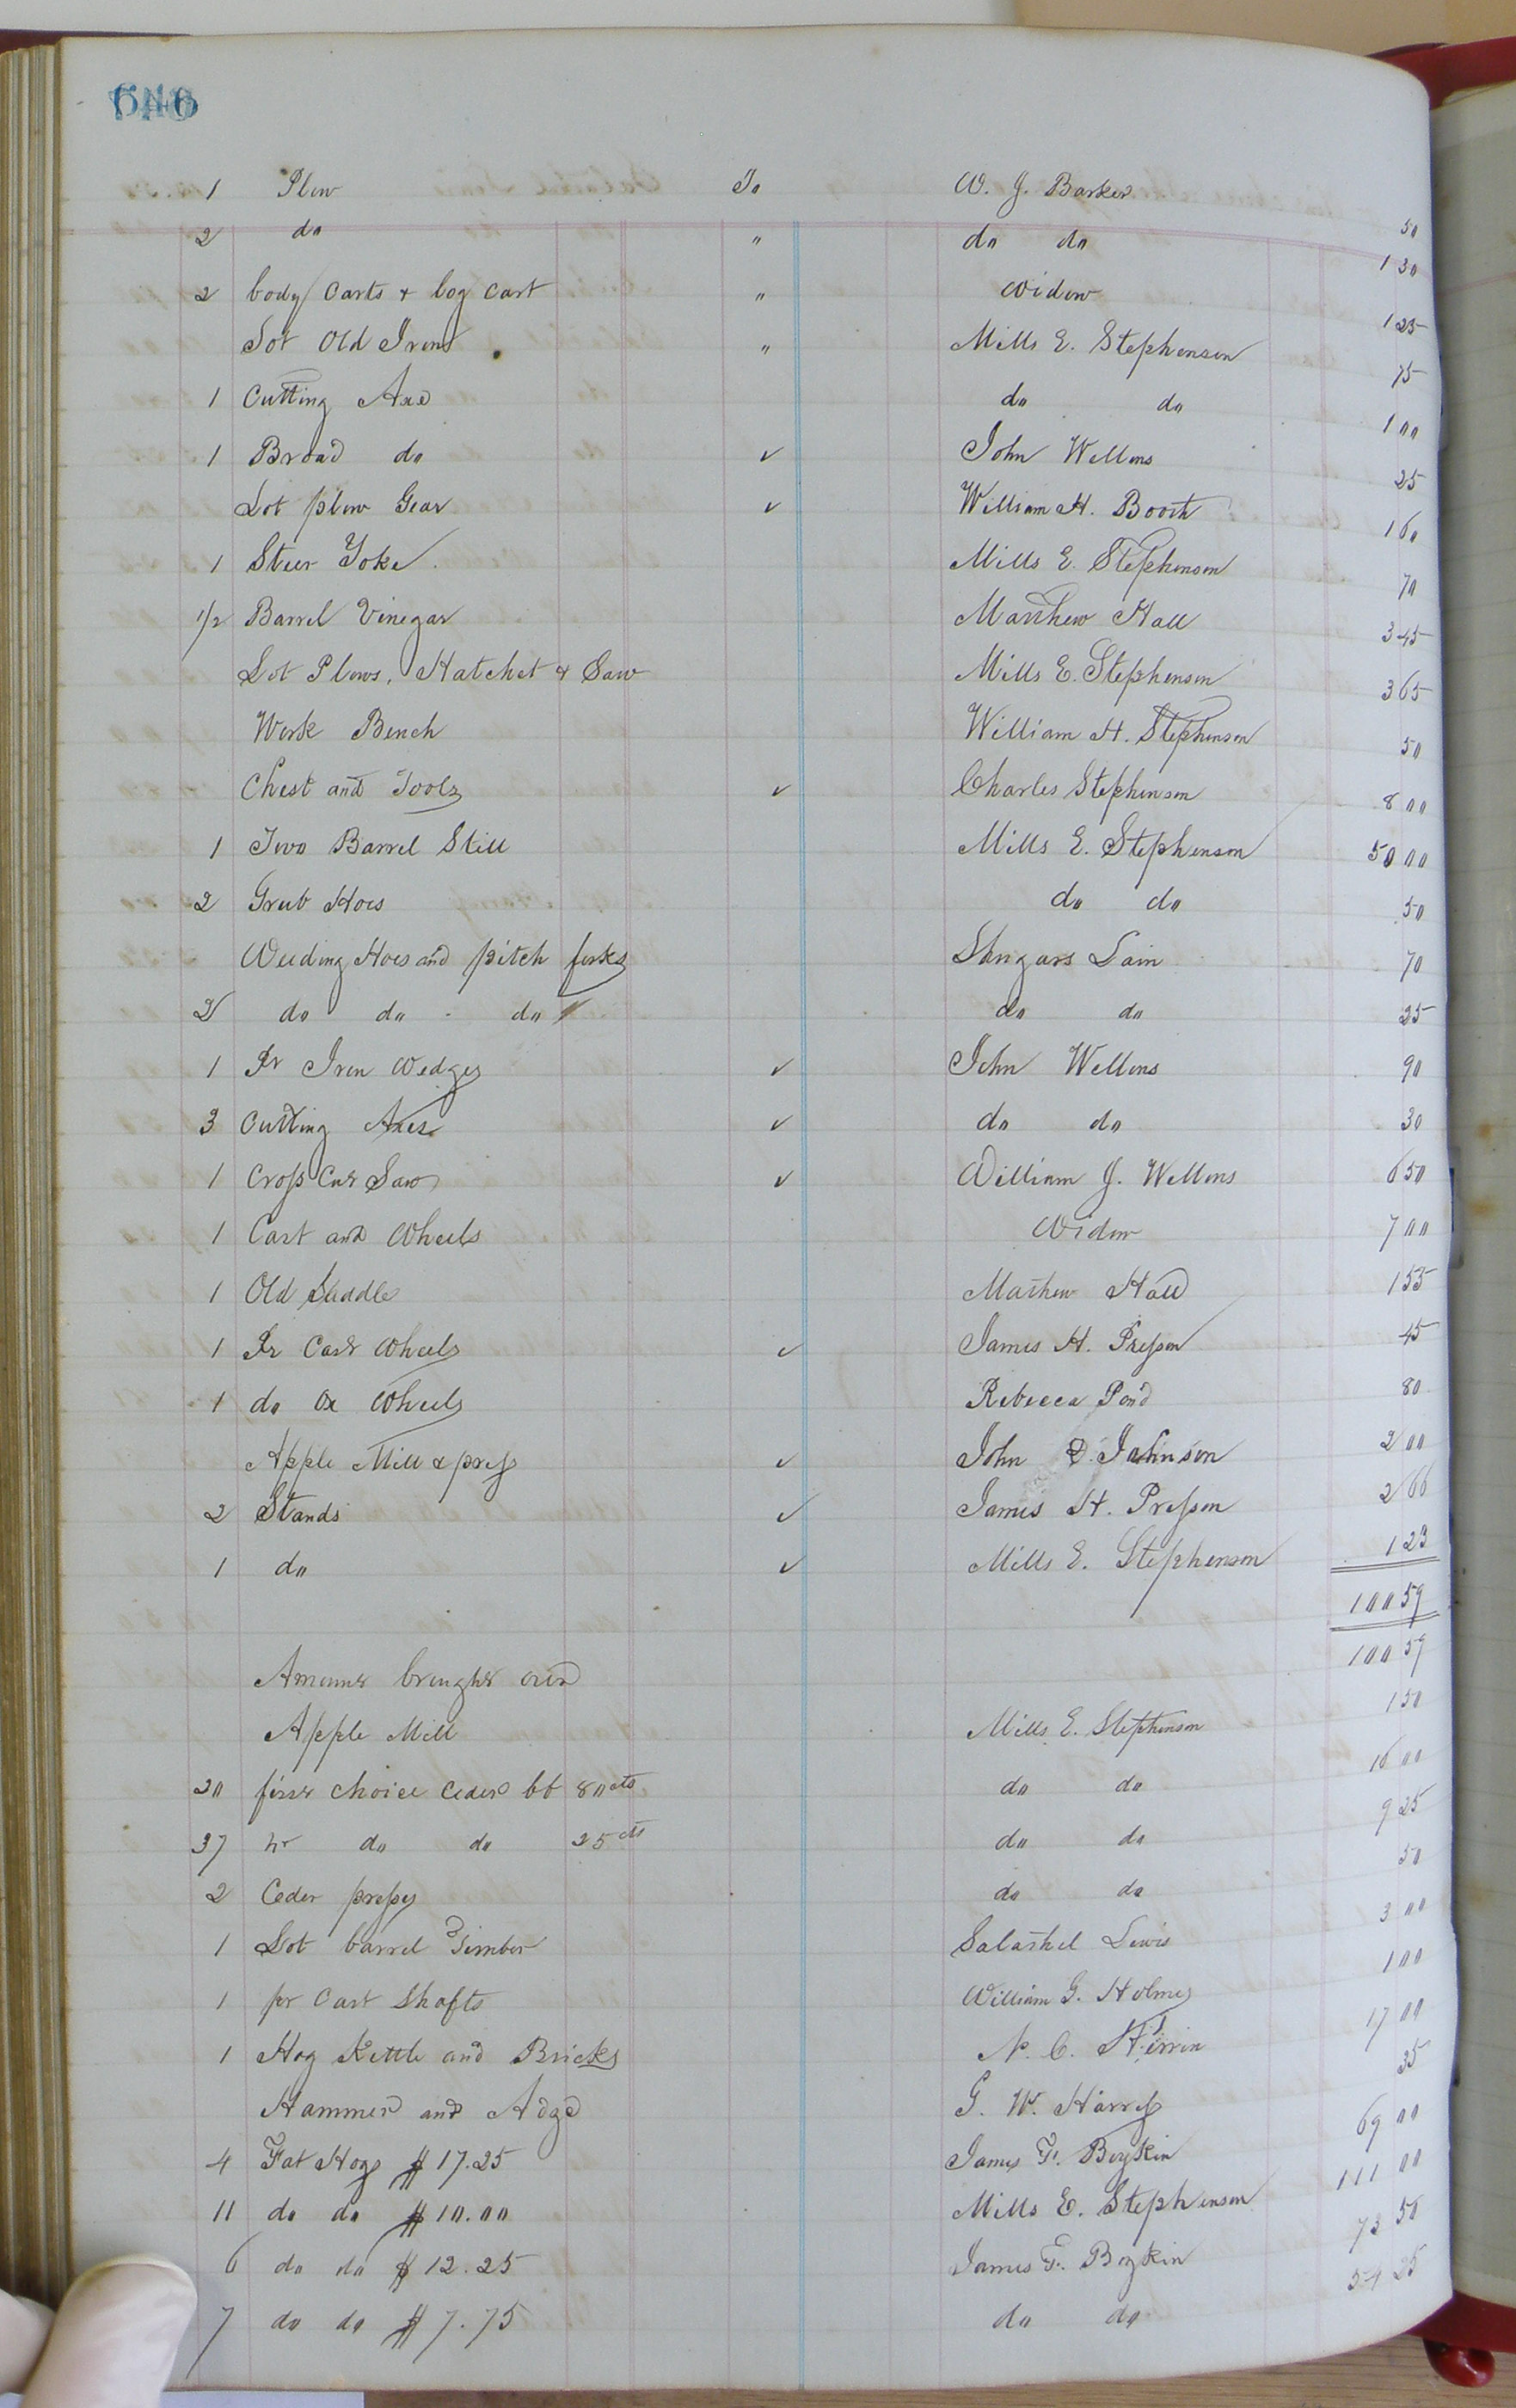 646
1 Plow To W. J. Barker 50
2 do " do do 1 30
2 body Carts + log Cart " Widow 1 25
Lot Old Irons " Mills E. Stephenson 75
1 Cutting Axe do do 1 00
1 Broad do ✓ John Wellons 25
Lot plow Gear ✓ William H. Booth 1 60
1 Steer Yoke Mills E. Stephenson 70
1/2 Barrel Vinegar Matthew Hall 3 45
Lot Plows, Hatchet + Saw Mills E. Stephenson 3 65
Work Bench William H. Stephenson 50
Chest and Tools ✓ Charles Stephenson 8 00
1 Two Barrel Still Mills E. Stephenson 50 00
2 Grub Hoes do do 50
Weeding Hoes and pitch forks Lain 70
2 do do do do do 25
1 Pr Iron Wedges ✓ John Wellons 90
3 Cutting Axes ✓ do do 30
1 Cross Cut Saw ✓ William J. Wellons 6 50
1 Cart and Wheels Widow 7 00
1 Old Saddle Mathew Hall 1 55
1 Pr Cart Wheels ✓ James H. Presson 45
1 do Ox Wheels Rebecca Pond 80
Apple Mill & press ✓ John Johnson 2 00
2 Stands ✓ James H. Presson 2 66
1 do ✓ Mills E. Stephenson 1 23
100 59
Amount brought over 100 59
Apple Mill Mills E. Stephenson 1 50
20 first choice Ceder bb 80 cts do do 16 00
37 do do 25 cts do do 9 25
2 Ceder presses do do 50
1 Lot barrel Timber Salathel Lewis 3 00
1 pr Cart Shafts William G. Holmes 1 00
1 Hog Kettle and Bricks N. C. 17 00
Hammer and Adge G. W. Harris 35
4 Fat Hogs $17.25 James F. Boykin 69 00
11 do do $10.00 Mills E. Stephenson 111 00
6 do do $12.25 James F. Boykin 73 50
7 do do $7.75 do do 54 25